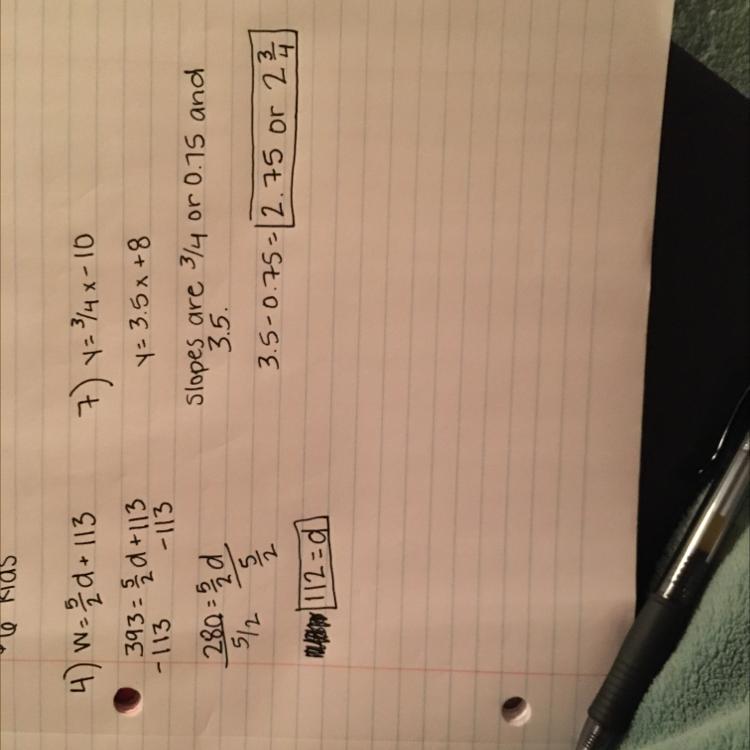 6 kids
4) W = 5/2 d + 113
393 = 5/2 d + 113
-113 -113
280 = 5/2 d
5/2 5/2
112 = d
7) y = 3/4 x - 10
y = 3.5x + 8
Slopes are 3/4 or 0.75 and
3.5.
3.5 - 0.75 = 2.75 or 2 3/4